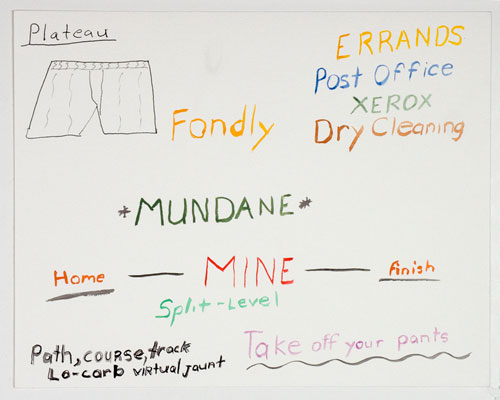 Plateau
ERRANDS
Post Office
XEROX
Dry Cleaning
Fondly
*MUNDANE*
Home — MINE — finish
Split-Level
Path, course, track
Lo-carb virtual jaunt
Take off your pants